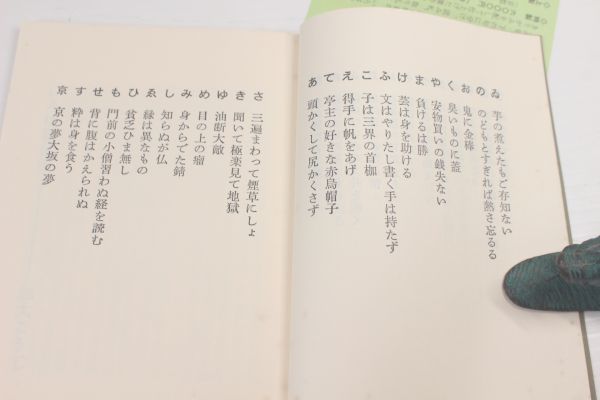 ゐ 芋の煮えたもご存知ない
の のどもとすぎれば熱さ忘るる
お 鬼に金棒
く 臭いものに蓋
や 安物買いの銭失ない
ま 負けるは勝
け 芸は身を助ける
ふ 文はやりたし書く手は持たず
こ 子は三界の首枷
え 得手に帆をあげ
て 亭主の好きな赤烏帽子
あ 頭かくして尻かくさず
さ 三遍まわって煙草にしょ
き 聞いて極楽見て地獄
ゆ 油断大敵
め 目の上の瘤
み 身からでた錆
し 知らぬが仏
ゑ 縁は異なもの
ひ 貧乏ひま無し
も 門前の小僧習わぬ経を読む
せ 背に腹はかえられぬ
す 粋は身を食う
京 京の夢大坂の夢